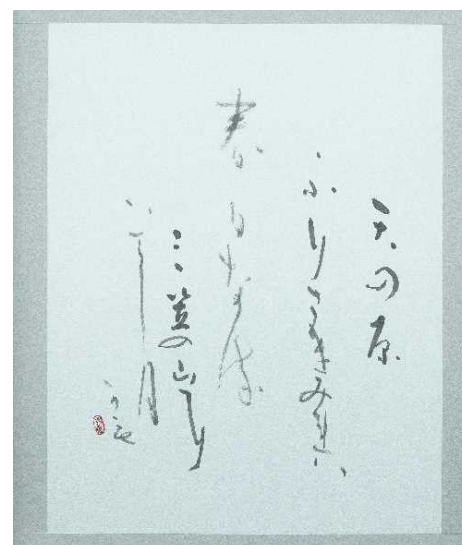 天の原
ふりさけみれは
春日な流
三笠の山に
いてし月